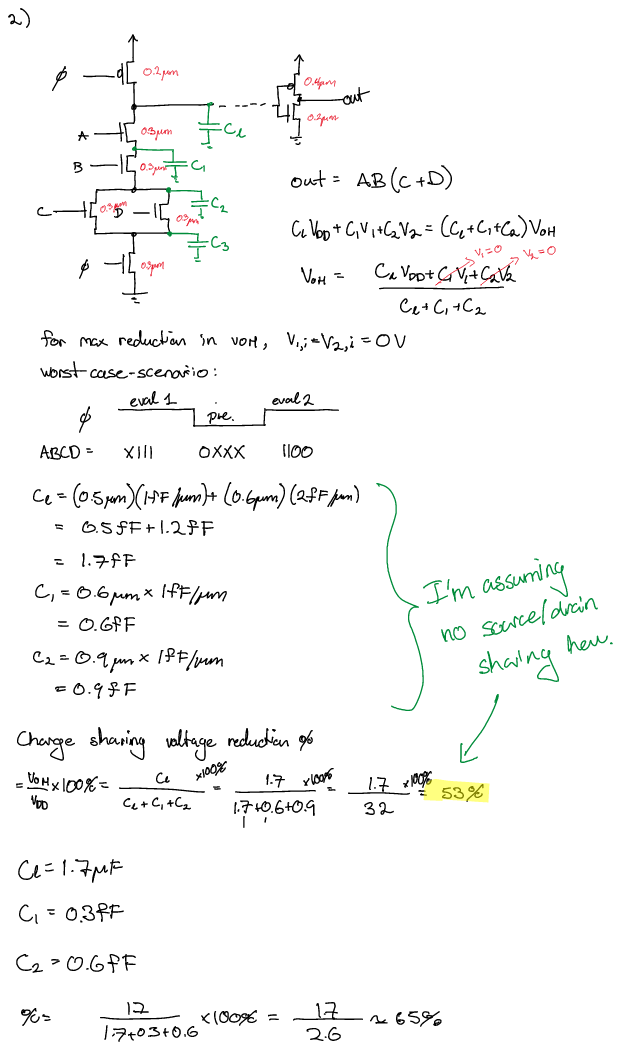 2)
φ
0.2μm
0.4μm
out
0.2μm
A
0.3μm
Cℓ
B
0.3μm
C1
C
0.3μm
D
0.3μm
C2
C3
φ
0.3μm
out = AB(C+D)
CℓVDD + C1V1 + C2V2 = (Cℓ+C1+C2)VOH
V1=0
V2=0
VOH = CℓVDD + C1V1 + C2V2
Cℓ + C1 + C2
for max reduction in VOH, V1,i = V2,i = 0V
worst case-scenario:
eval 1 pre. eval 2
φ
ABCD = X111 0XXX 1100
Cℓ = (0.5μm)(1fF/μm) + (0.6μm)(2fF/μm)
= 0.5fF + 1.2fF
= 1.7fF
C1 = 0.6μm × 1fF/μm
= 0.6fF
C2 = 0.9μm × 1fF/μm
= 0.9fF
I'm assuming
no source/drain
sharing here.
Charge sharing voltage reduction %
= VOH/VDD ×100% = Cℓ/(Cℓ+C1+C2) ×100% = 1.7/(1.7+0.6+0.9) ×100% = 1.7/3.2 ×100% = 53%
Cℓ = 1.7μF
C1 = 0.3fF
C2 = 0.6fF
% = 1.7/(1.7+0.3+0.6) ×100% = 1.7/2.6 ≈ 65%